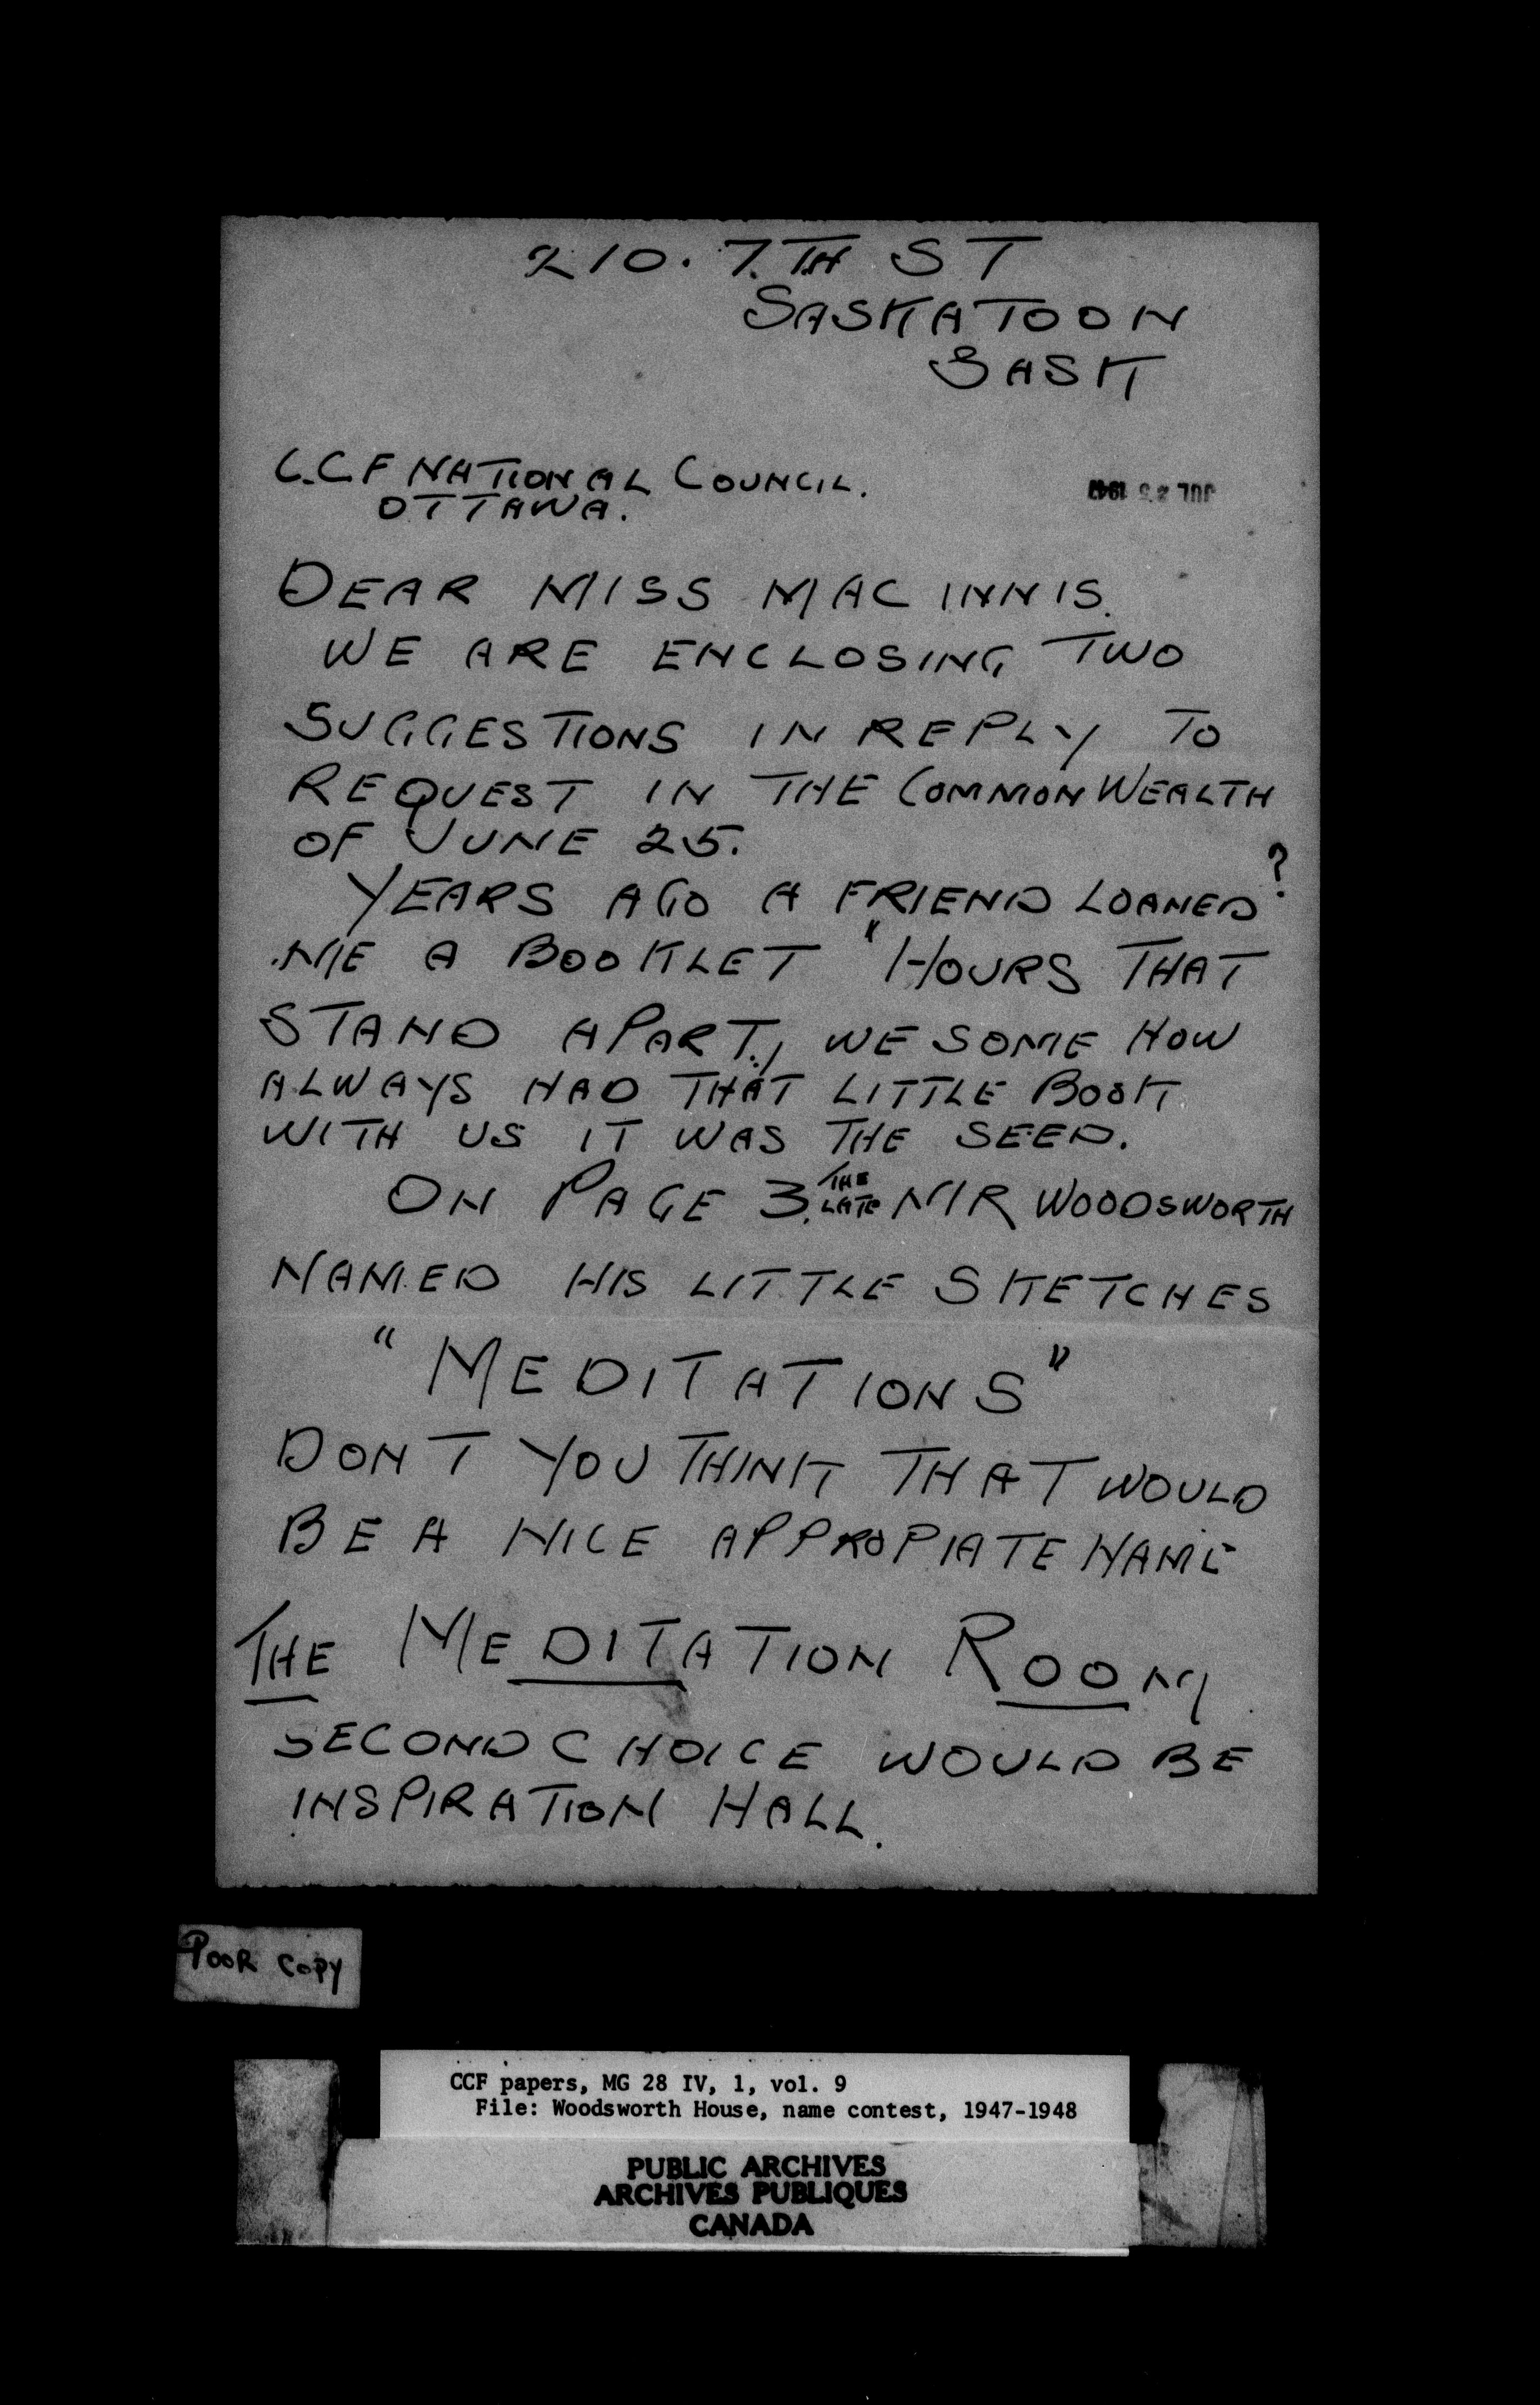 210. 7.TH ST
SASKATOON
SASK
C.C.F NATIONAL COUNCIL.
OTTAWA.
JUL 25 1947
DEAR MISS MAC INNIS.
WE ARE ENCLOSING TWO
SUGGESTIONS IN REPLY TO
REQUEST IN THE COMMONWEALTH
OF JUNE 25.
YEARS AGO A FRIEND LOANED ?
ME A BOOKLET "HOURS THAT
STAND APART., WE SOME HOW
ALWAYS HAD THAT LITTLE BOOK
WITH US IT WAS THE SEED.
ON PAGE 3. THE LATE MR WOODSWORTH
NAMED HIS LITTLE SKETCHES
"MEDITATIONS"
DONT YOU THINK THAT WOULD
BE A NICE APPROPIATE NAME
THE MEDITATION ROOM
SECOND CHOICE WOULD BE
INSPIRATION HALL.
POOR COPY
CCF papers, MG 28 IV, 1, vol. 9
File: Woodsworth House, name contest, 1947-1948
PUBLIC ARCHIVES
ARCHIVES PUBLIQUES
CANADA